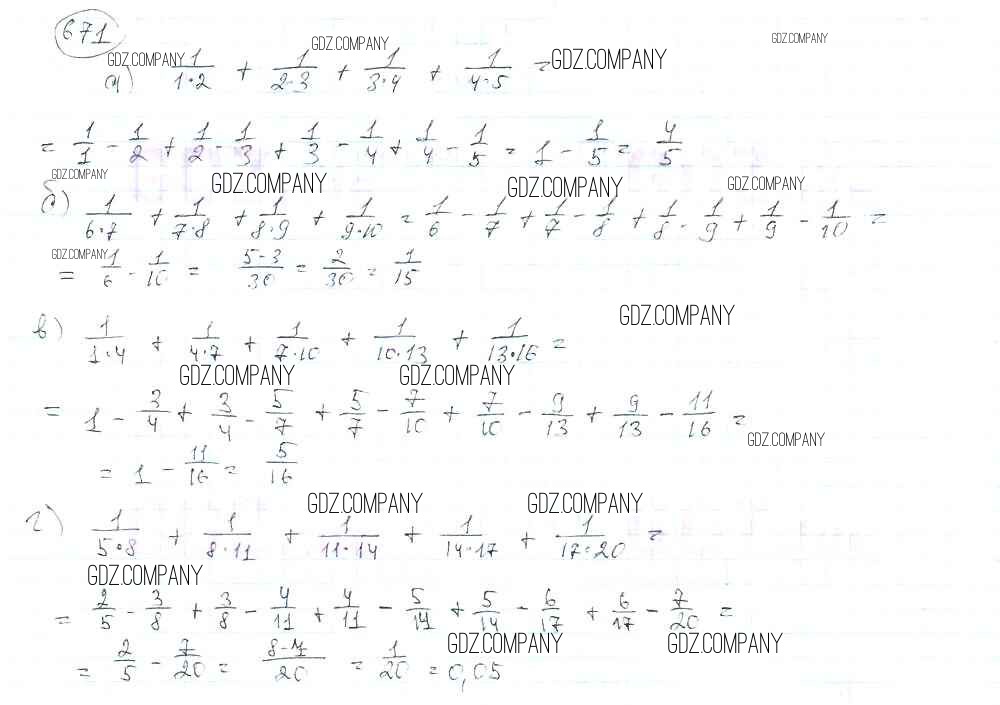 671
GDZ.COMPANY GDZ.COMPANY GDZ.COMPANY
а) 1/(1·2) + 1/(2·3) + 1/(3·4) + 1/(4·5) = GDZ.COMPANY
= 1/1 - 1/2 + 1/2 - 1/3 + 1/3 - 1/4 + 1/4 - 1/5 = 1 - 1/5 = 4/5
GDZ.COMPANY GDZ.COMPANY GDZ.COMPANY GDZ.COMPANY
б) 1/(6·7) + 1/(7·8) + 1/(8·9) + 1/(9·10) = 1/6 - 1/7 + 1/7 - 1/8 + 1/8 - 1/9 + 1/9 - 1/10 =
GDZ.COMPANY
= 1/6 - 1/10 = (5-3)/30 = 2/30 = 1/15
GDZ.COMPANY
в) 1/(1·4) + 1/(4·7) + 1/(7·10) + 1/(10·13) + 1/(13·16) =
GDZ.COMPANY GDZ.COMPANY
= 1 - 3/4 + 3/4 - 5/7 + 5/7 - 7/10 + 7/10 - 9/13 + 9/13 - 11/16 =
GDZ.COMPANY
= 1 - 11/16 = 5/16
GDZ.COMPANY GDZ.COMPANY
г) 1/(5·8) + 1/(8·11) + 1/(11·14) + 1/(14·17) + 1/(17·20) =
GDZ.COMPANY
= 2/5 - 3/8 + 3/8 - 4/11 + 4/11 - 5/14 + 5/14 - 6/17 + 6/17 - 7/20 =
GDZ.COMPANY GDZ.COMPANY
= 2/5 - 7/20 = (8-7)/20 = 1/20 = 0,05